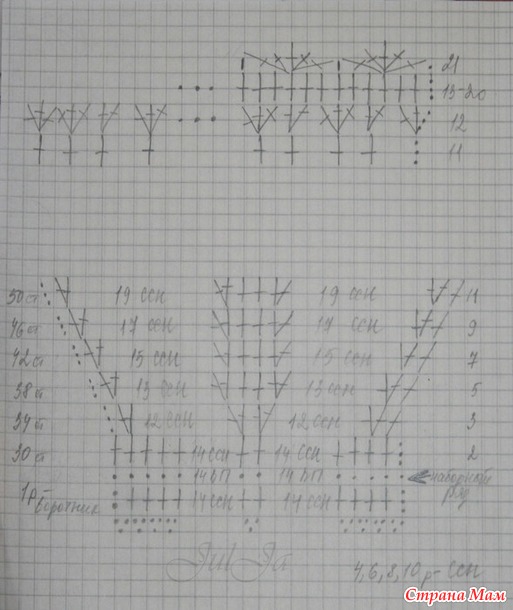 21
13-20
12
11
50 ст 19 ссн 19 ссн 11
46 ст 17 ссн 17 ссн 9
42 ст 15 ссн 15 ссн 7
38 ст 13 ссн 13 ссн 5
34 ст 12 ссн 12 ссн 3
30 ст 14 ссн 14 ссн 2
14 ВП 14 ВП наборный
ряд
1р- 14 ссн 14 ссн
воротник
JulJa
4,6,8,10р- ссн
Страна Мам